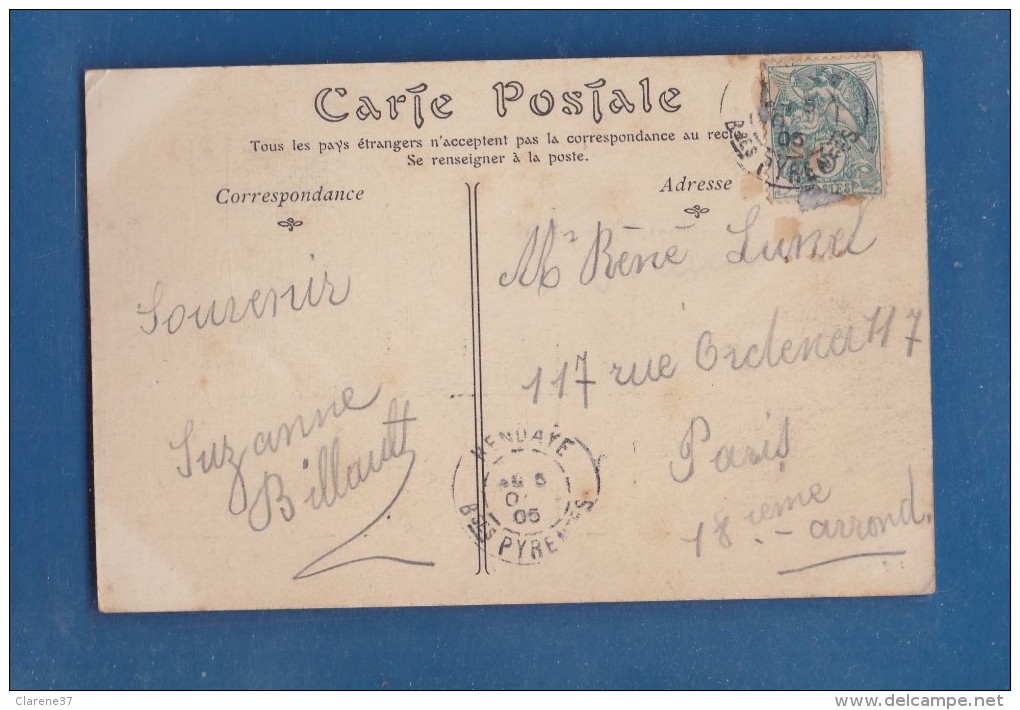 Carte Postale
Tous les pays étrangers n'acceptent pas la correspondance au recto
Se renseigner à la poste.
Correspondance
Adresse
Souvenir
Suzanne
Billault
Mr Réné Lunel
117 rue Ordener 117
Paris
18ième arrond.
HENDAYE
05
Bses PYRENEES
05
Bses PYRENEES
POSTES
Clarene37
www.delcampe.net